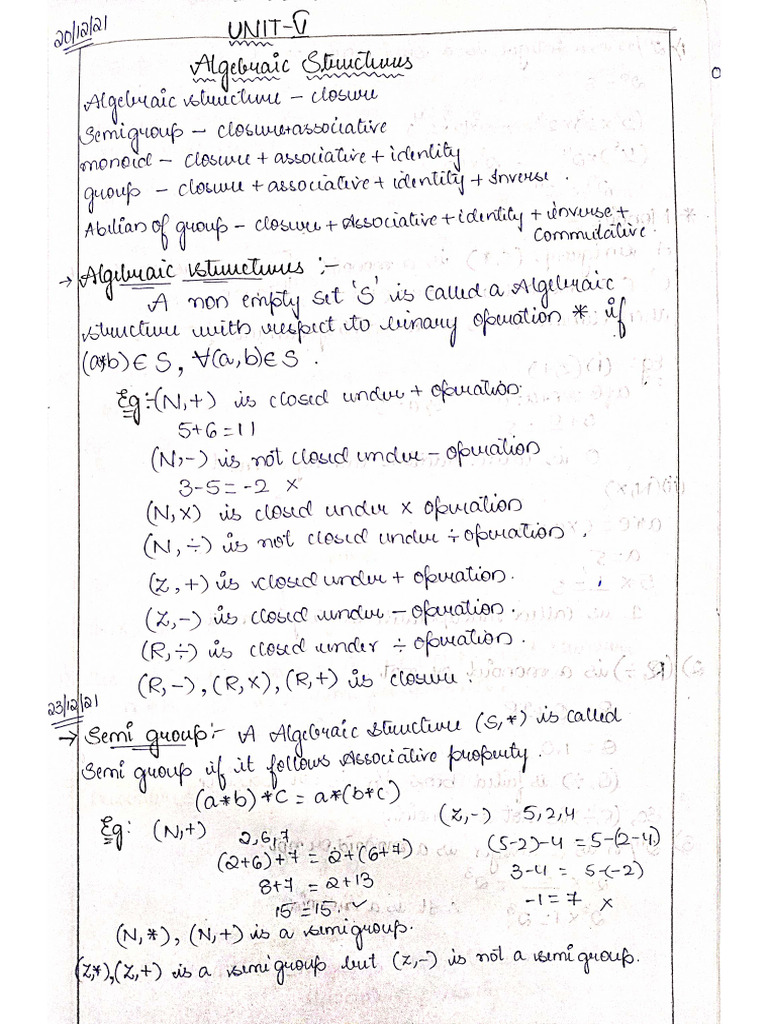 20/12/21
UNIT-V
Algebraic Structures
Algebraic structure - closure
Semigroup - closure+associative
monoid - closure + associative + identity
group - closure + associative + identity + Inverse .
Abilian of group - closure + Associative + identity + inverse +
Commutative.
→ Algebraic structures :-
A non empty set 'S' is called a Algebraic
structure with respect to binary operation * if
(a*b) ∈ S, ∀(a,b) ∈ S .
Eg :- (N,+) is closed under + operation.
5+6=11
(N,-) is not closed under - operation
3-5=-2 x
(N,x) is closed under x operation
(N,÷) is not closed under ÷ operation.
(Z,+) is closed under + operation.
(Z,-) is closed under - operation.
(R,÷) is closed under ÷ operation.
(R,-), (R,x), (R,+) is closure.
23/12/21
→ Semi group:- A Algebraic structure (S,*) is called
Semi group if it follows Associative property.
(a*b)*c = a*(b*c)
Eg: (N,+)
2,6,7
(2+6)+7 = 2+(6+7)
8+7 = 2+13
15 = 15. ✓
(Z,-) 5,2,4
(5-2)-4 = 5-(2-4)
3-4 = 5-(-2)
-1 = 7 x
(N,*), (N,+) is a semigroup.
(Z,*),(Z,+) is a semigroup but (Z,-) is not a semigroup.